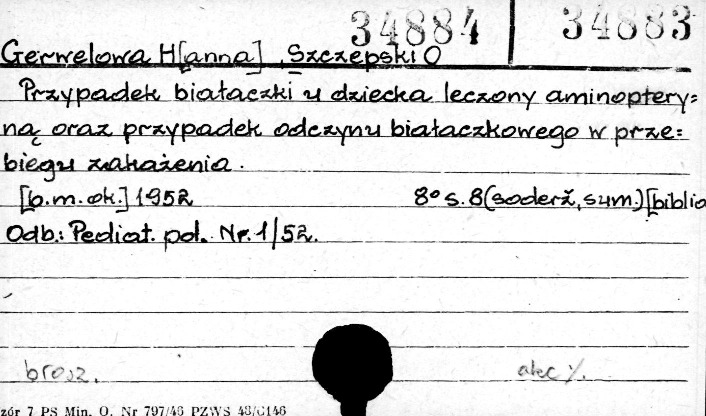 34884 34883
Gerwelowa H[anna], Szczepski O
Przypadek białaczki u dziecka leczony aminoptery=
ną oraz przypadek odczynu białaczkowego w prze=
biegu zakażenia.
[b.m.ok.] 1952 8° s. 8 (soderż, sum.) [biblio
Odb.: Pediat. pol. Nr. 1/52.
brosz. akc %.
zór 7 PS Min. O. Nr 797/46 PZWS 48/G146